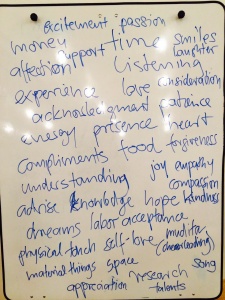 excitement passion
money support time smiles
laughter
affection listening
experience love consideration
acknowledgment patience
energy presence heart
compliments food forgiveness
understanding joy empathy
compassion
advise knowledge hope kindness
dreams labor acceptance
physical touch self-love mudita
(cheerleading)
material things space song
appreciation research
talents